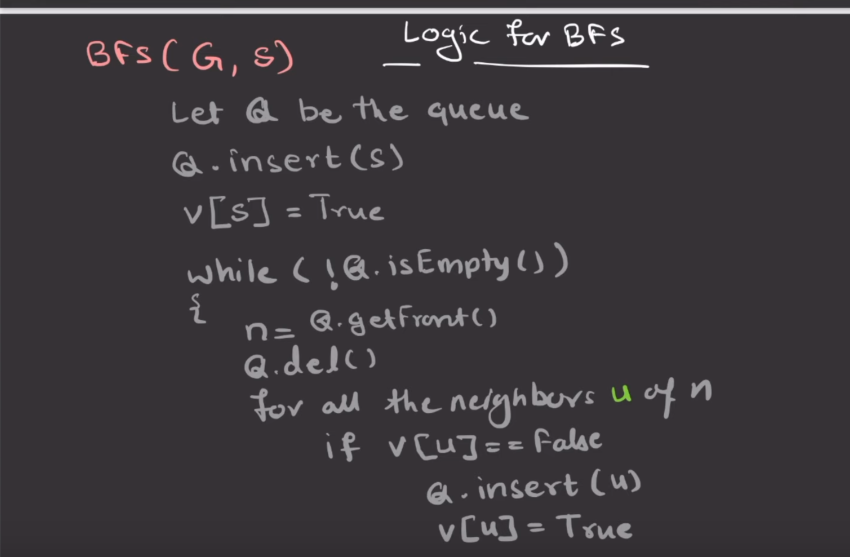 Logic for BFS
BFS(G, S)
Let Q be the queue
Q.insert(S)
v[S] = True
while (!Q.isEmpty())
{
n = Q.getFront()
Q.del()
for all the neighbors u of n
if v[u] == False
Q.insert(u)
v[u] = True